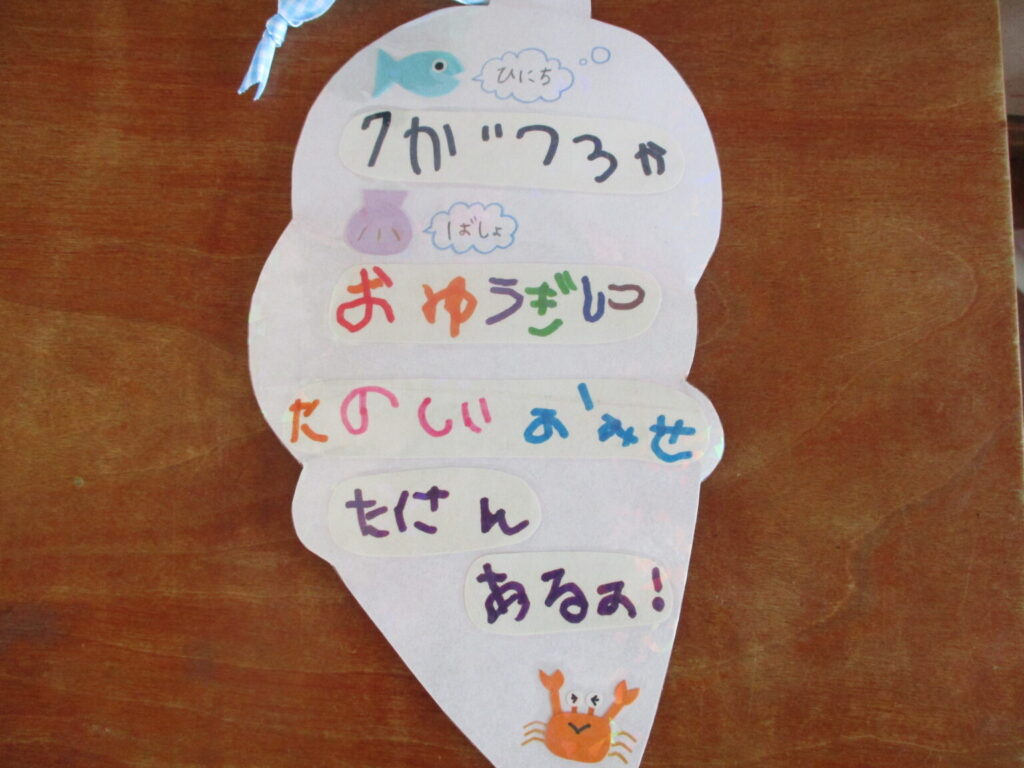 ひにち
7がつ3か
ばしょ
おゆうぎしつ
たのしいおみせ
たくさん
あるよ!